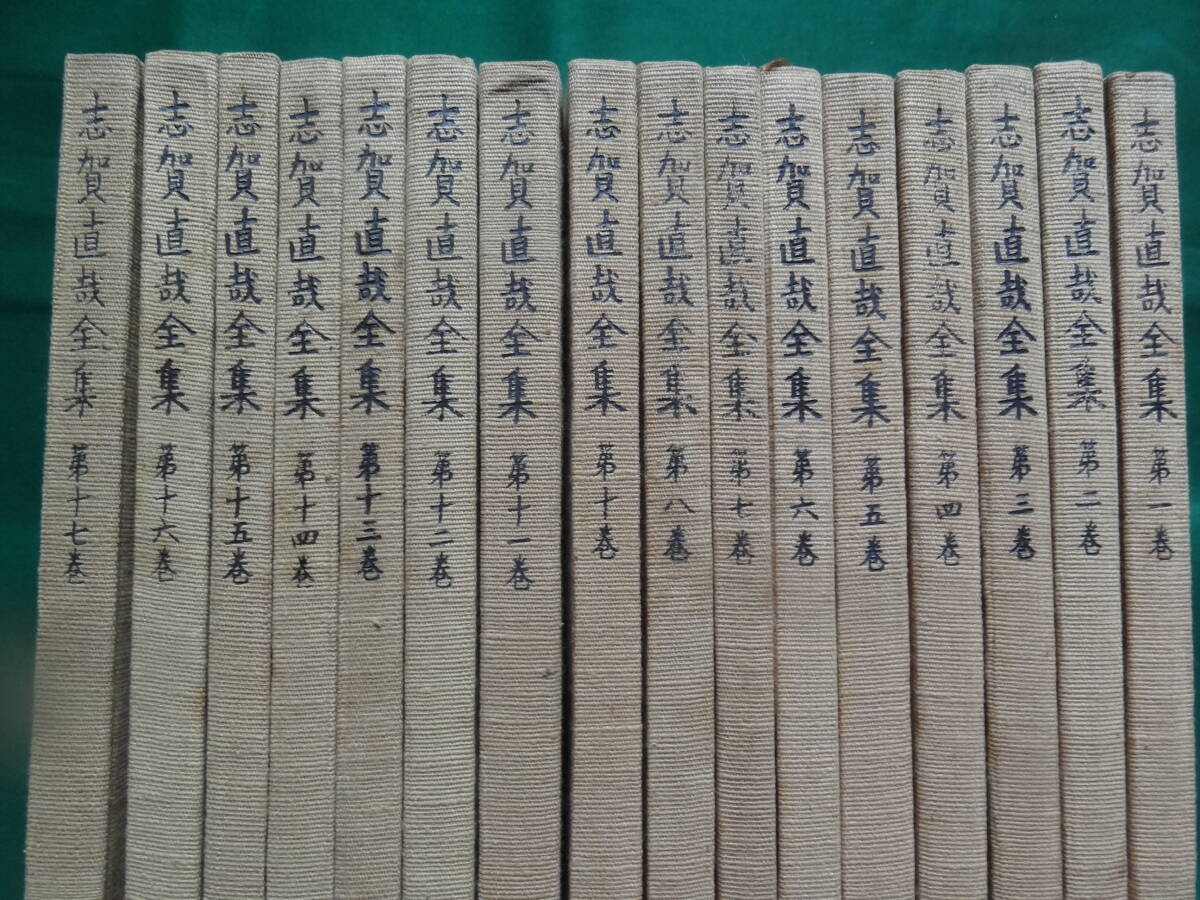 志賀直哉全集 第一巻
志賀直哉全集 第二巻
志賀直哉全集 第三巻
志賀直哉全集 第四巻
志賀直哉全集 第五巻
志賀直哉全集 第六巻
志賀直哉全集 第七巻
志賀直哉全集 第八巻
志賀直哉全集 第十巻
志賀直哉全集 第十一巻
志賀直哉全集 第十二巻
志賀直哉全集 第十三巻
志賀直哉全集 第十四巻
志賀直哉全集 第十五巻
志賀直哉全集 第十六巻
志賀直哉全集 第十七巻